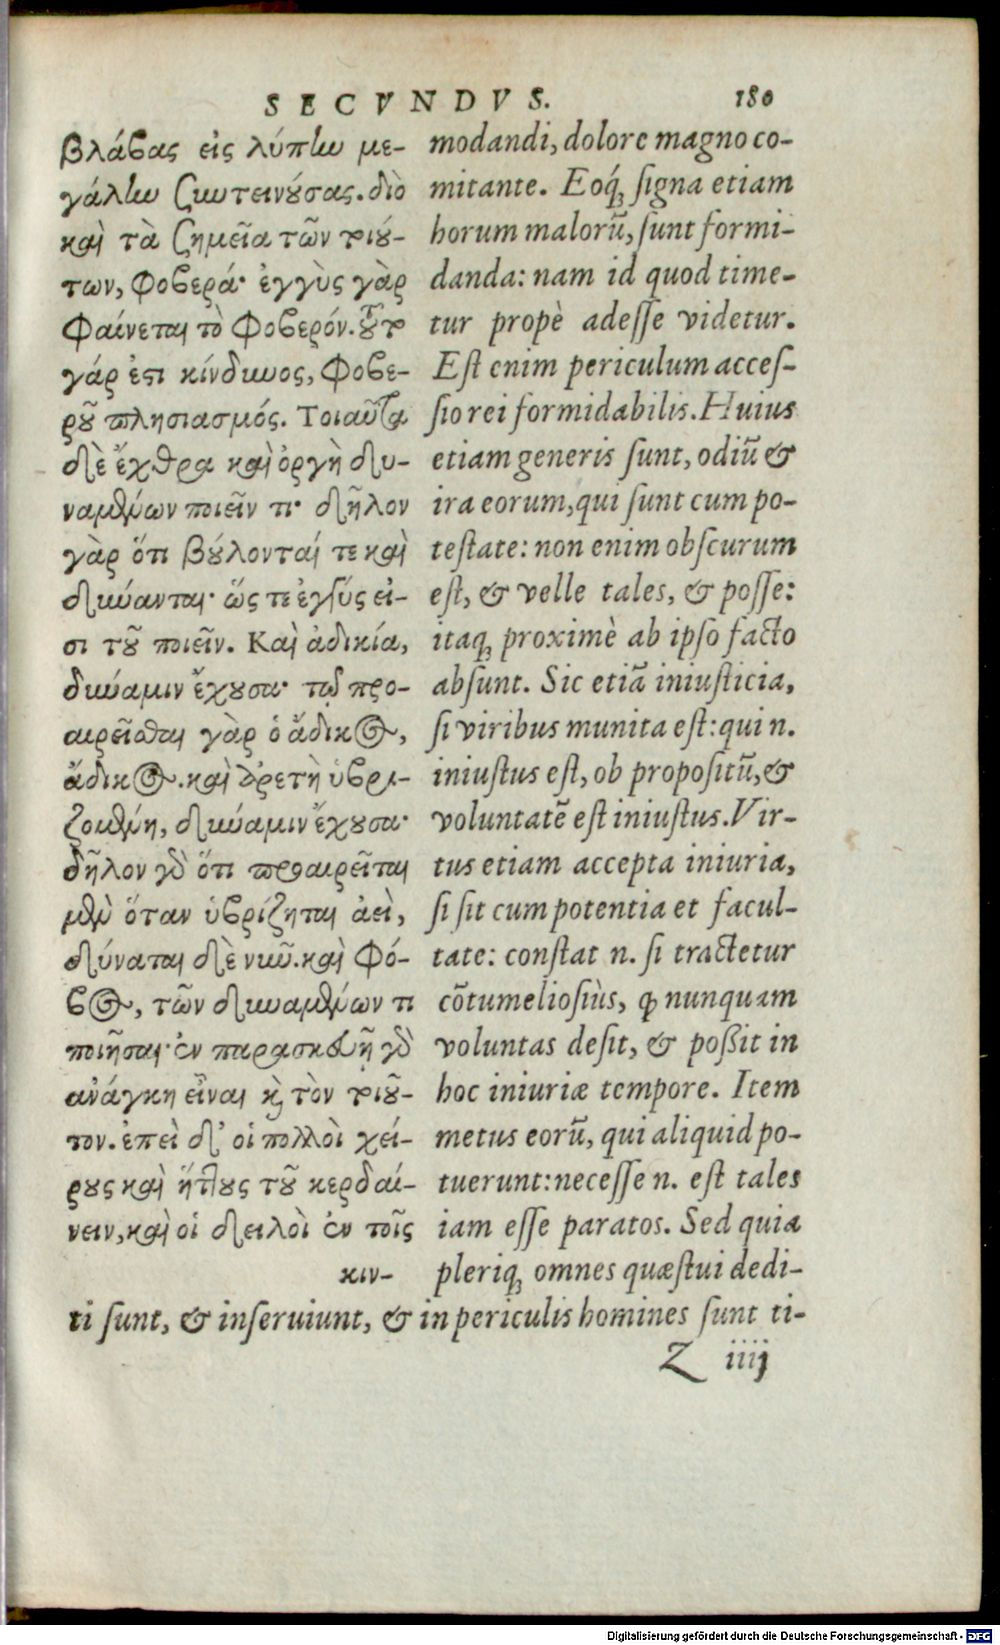 SECVNDVS. 180
βλάβας εἰς λύπην με-
γάλην συντεινούσας. διὸ
καὶ τὰ σημεῖα τῶν τοιού-
των, φοβερά· ἐγγὺς γὰρ
φαίνεται τὸ φοβερόν. τοῦτο
γάρ ἐστι κίνδυνος, φοβε-
ροῦ πλησιασμός. Τοιαῦτα
δὲ ἔχθρα καὶ ὀργὴ δυ-
ναμένων ποιεῖν τι· δῆλον
γὰρ ὅτι βούλονταί τε καὶ
δύνανται· ὥς τε ἐγγύς εἰ-
σι τοῦ ποιεῖν. Καὶ ἀδικία,
δύναμιν ἔχουσα· τῷ προ-
αιρεῖσθαι γὰρ ὁ ἄδικος,
ἄδικος. καὶ ἀρετὴ ὑβρι-
ζομένη, δύναμιν ἔχουσα·
δῆλον γὰρ ὅτι προαιρεῖται
μὲν ὅταν ὑβρίζηται ἀεὶ,
δύναται δὲ νῦν. καὶ φό-
βος, τῶν δυναμένων τι
ποιῆσαι· ἐν παρασκευῇ γὰρ
ἀνάγκη εἶναι καὶ τὸν τοιοῦ-
τον. ἐπεὶ δ' οἱ πολλοὶ χεί-
ρους καὶ ἥττους τοῦ κερδαί-
νειν, καὶ οἱ δειλοὶ ἐν τοῖς
κιν-
modandi, dolore magno co-
mitante. Eoq́; signa etiam
horum malorũ, sunt formi-
danda: nam id quod time-
tur propè adesse videtur.
Est enim periculum acces-
sio rei formidabilis. Huius
etiam generis sunt, odiũ &
ira eorum, qui sunt cum po-
testate: non enim obscurum
est, & velle tales, & posse:
itaq; proximè ab ipso facto
absunt. Sic etiã iniusticia,
si viribus munita est: qui n.
iniustus est, ob propositũ, &
voluntatẽ est iniustus. Vir-
tus etiam accepta iniuria,
si sit cum potentia et facul-
tate: constat n. si tractetur
cõtumeliosiùs, ꝙ nunquam
voluntas desit, & poßit in
hoc iniuriæ tempore. Item
metus eorũ, qui aliquid po-
tuerunt: necesse n. est tales
iam esse paratos. Sed quia
pleriq; omnes quæstui dedi-
ti sunt, & inseruiunt, & in periculis homines sunt ti-
Z iiij
Digitalisierung gefördert durch die Deutsche Forschungsgemeinschaft - DFG